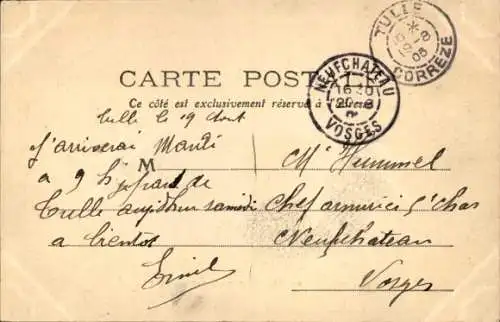 TULLE
19-8
05
CORREZE
NEUFCHATEAU
16 30
20-8
VOSGES
CARTE POST
Ce côté est exclusivement réservé à l'adresse
Tulle le 19 Aout
J'arriverai Mardi
a 9 h je pars de
Tulle aujourd'hui samedi
a bientot
Emile
M
Mr Hummel
Chef armurier 5e Chas
Neufchateau
Vosges